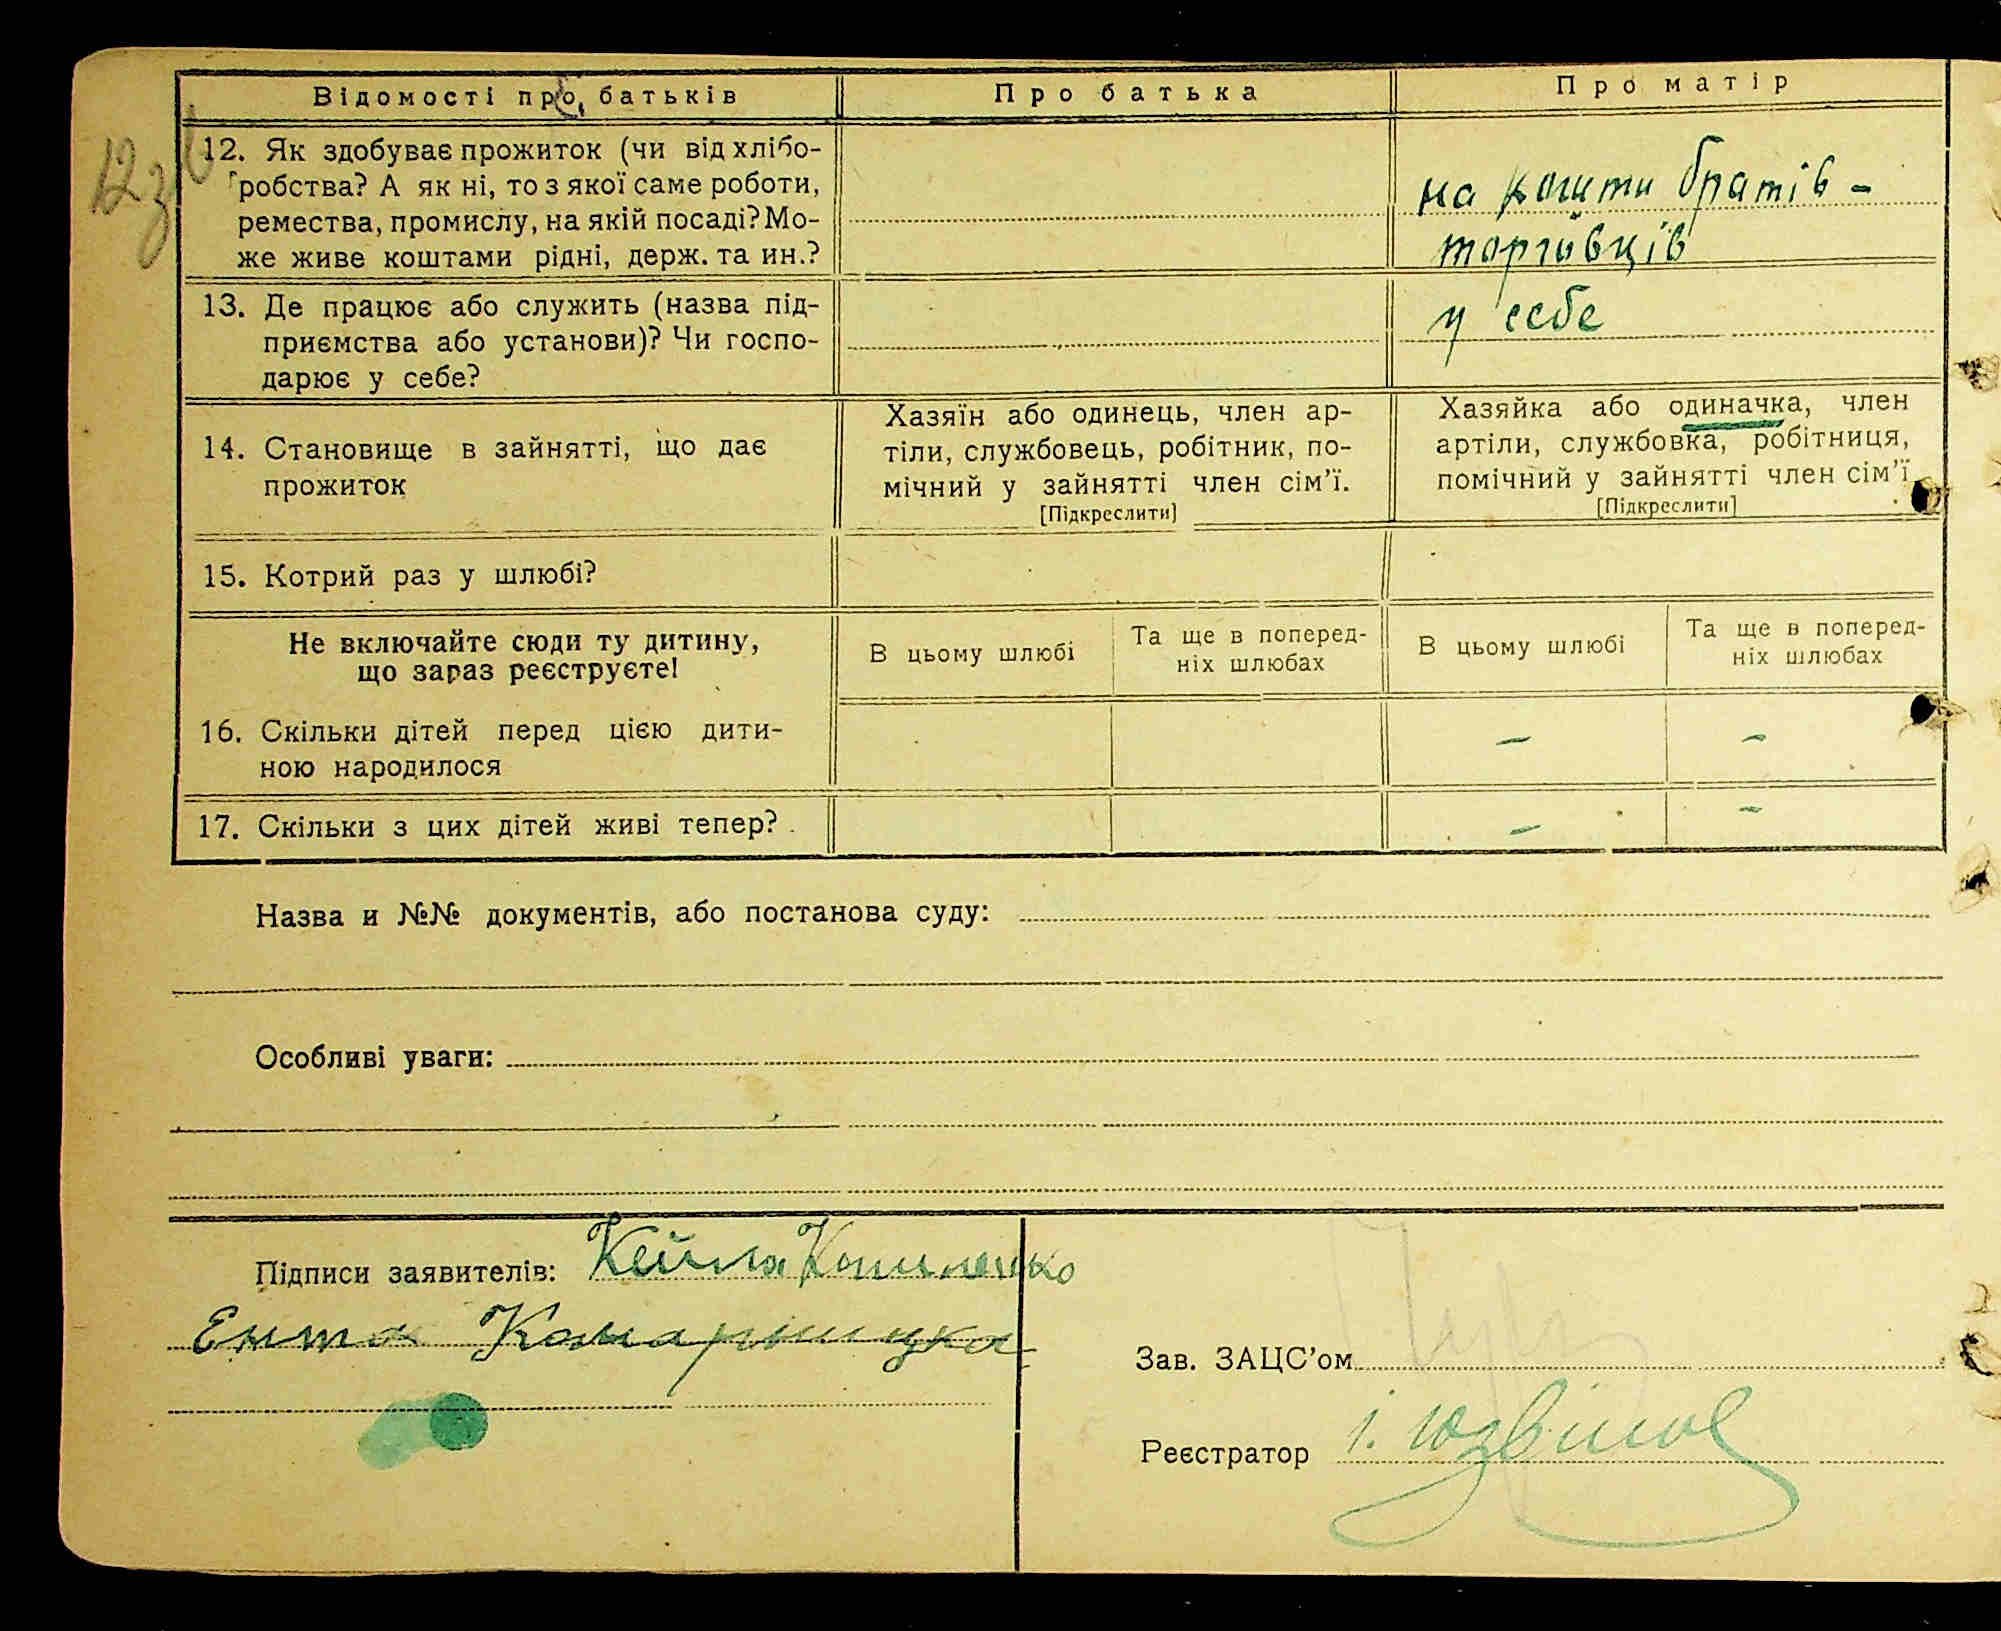 Відомості про батьків
Про батька
Про матір
12. Як здобуває прожиток (чи від хлібо-
робства? А як ні, то з якої саме роботи,
ремества, промислу, на якій посаді? Мо-
же живе коштами рідні, держ. та ин.?
на кошти братів -
торгівців
13. Де працює або служить (назва під-
приємства або установи)? Чи госпо-
дарює у себе?
у себе
14. Становище в зайнятті, що дає
прожиток
Хазяїн або одинець, член ар-
тіли, службовець, робітник, по-
мічний у зайнятті член сім'ї.
[Підкреслити]
Хазяйка або одиначка, член
артіли, службовка, робітниця,
помічний у зайнятті член сім'ї
[Підкреслити]
15. Котрий раз у шлюбі?
Не включайте сюди ту дитину,
що зараз реєструєте!
В цьому шлюбі
Та ще в поперед-
ніх шлюбах
В цьому шлюбі
Та ще в поперед-
ніх шлюбах
16. Скільки дітей перед цією дити-
ною народилося
– –
17. Скільки з цих дітей живі тепер?
– –
Назва и №№ документів, або постанова суду:
Особливі уваги:
Підписи заявителів: Кейла
Ента
Зав. ЗАЦС'ом
Реєстратор І.